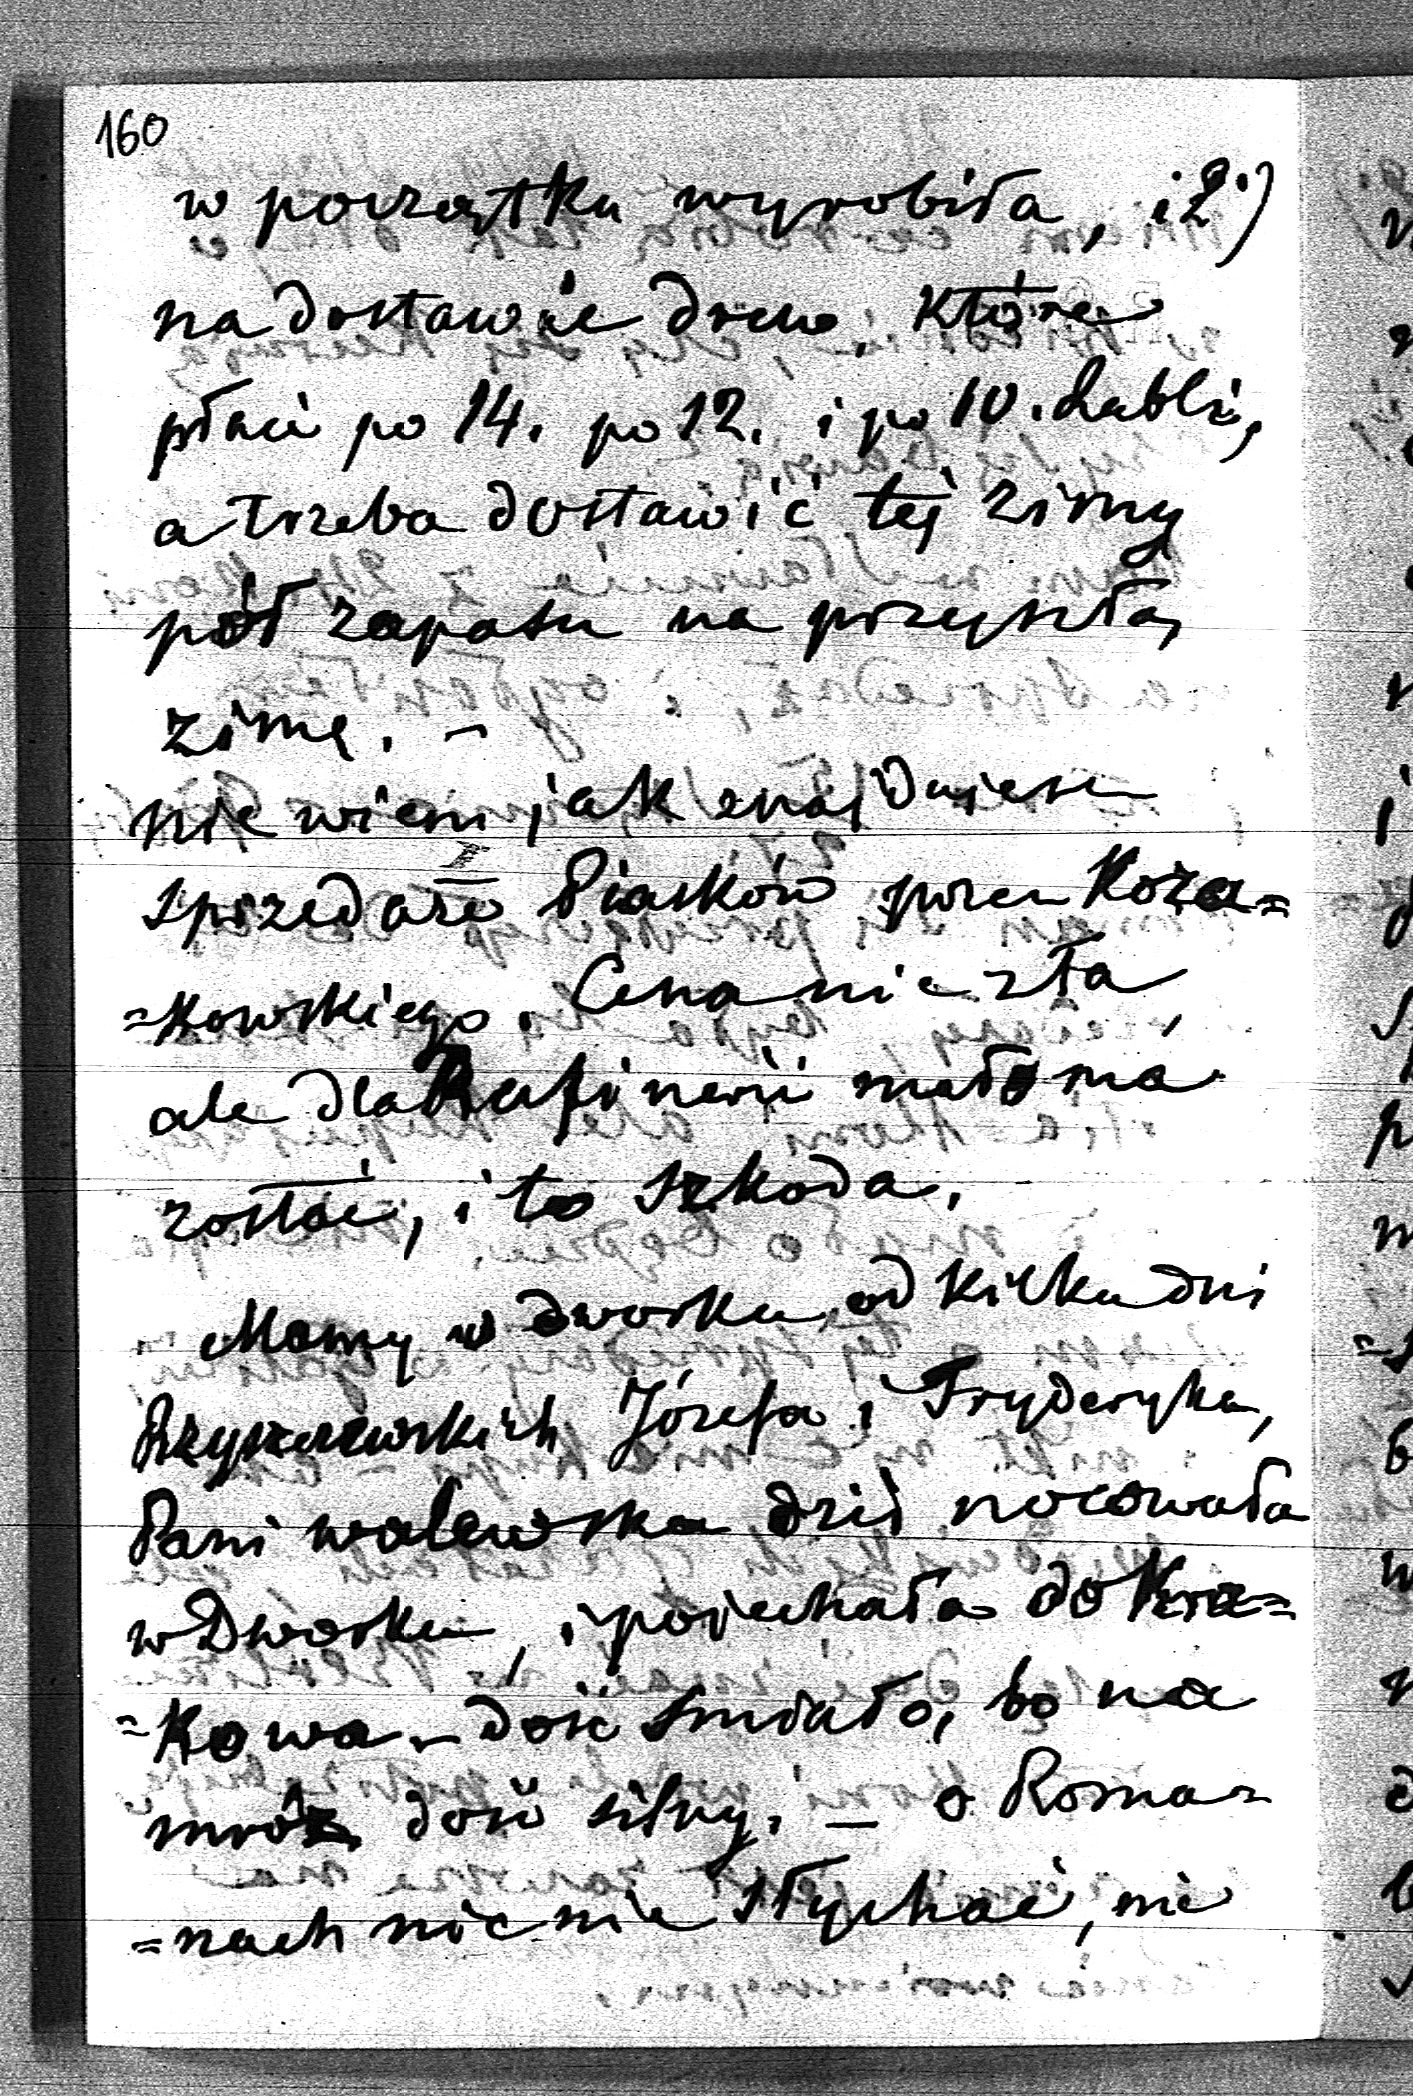 160
w początku wyrobiła, i 2.)
na dostawie drew, które
płaci po 14. po 12. i po 10. Rubli,
a trzeba dostawić tej zimy
pół zapasu na przyszłą
zimę. –
nie wiem jak znajdujesz
sprzedaż Piasków przez Koza=
=kowskiego. Cena nie zła,
ale dla Rafinerii mało ma
zostać, i to szkoda.
Mamy w dworku od kilku dni
Józefa i Fryderyka,
Pani Walewska dziś nocowała
w Dworku, i pojechała do Kra=
=kowa – dość śmiało, bo na
mróz dość silny. – o Roma=
=nach nic nie słychać, nie